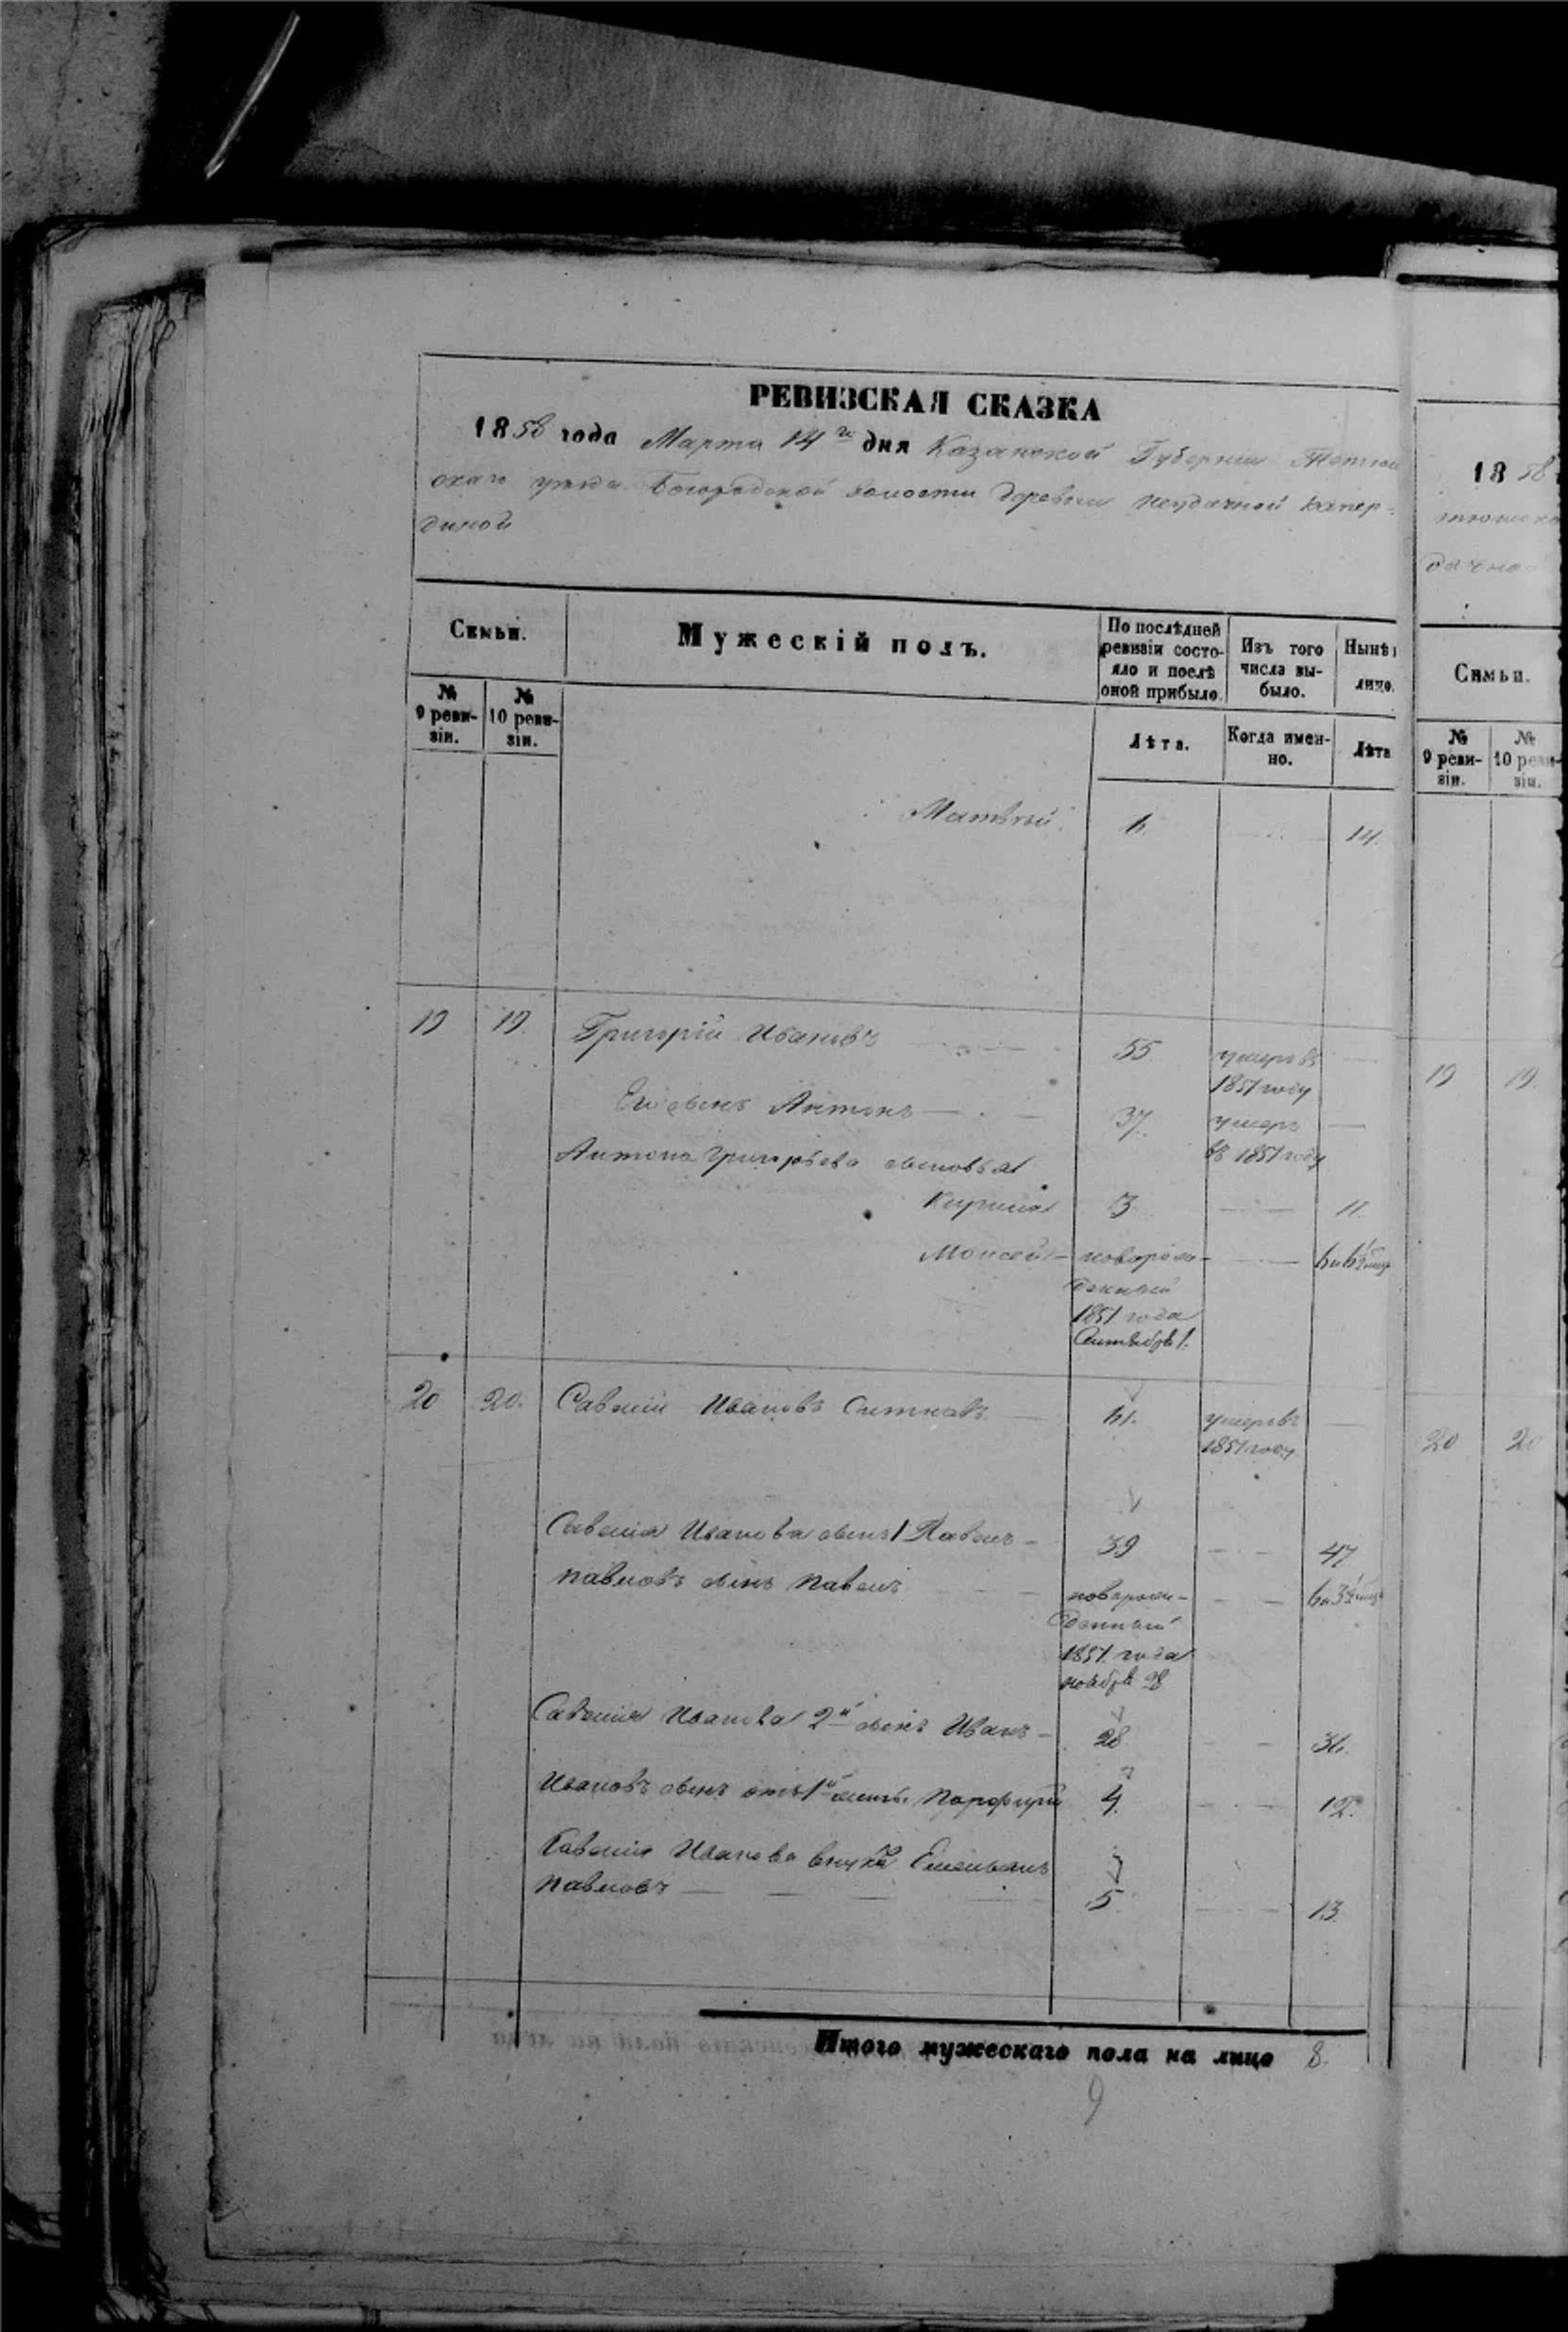 РЕВИЗСКАЯ СКАЗКА
1858 года Марта 14го дня Казанской Губернии Тетюш
скаго уѣзда Богородской волости деревни Неудачной Капер-
диной
Семьи.
Мужескій полъ.
По послѣдней ревизіи состояло и послѣ оной прибыло.
Изъ того числа выбыло.
Нынѣ
лицо.
№ 9 ревизіи.
№ 10 ревизіи.
Лѣта.
Когда именно.
Лѣта
Матвѣй 6 14.
19 19. Григорій Ивановъ 55 умеръ въ
1851 году
Его сынъ Антонъ 37. умеръ
въ 1851 году
Антона Григорьева сыновья
Кирила 3 11.
Моисей новорож-
денный
1851 года
Сентября 1. 6 и 6½ мцъ
20 20. Савелій Ивановъ Ситновъ 61. умеръ въ
1851 году
Савелія Иванова сынъ 1 Павелъ 39 47
Павловъ сынъ Павелъ новорож-
денный
1851 года
ноября 28 6 и 3½ мцъ
Савелія Иванова 2й сынъ Иванъ 28 36.
Ивановъ сынъ отъ 1й жены Порфирій 4. 12.
Савелія Иванова внукъ Емельянъ
Павловъ 5 13
Итого мужескаго пола на лицо 8.
9
1858
тюшска
дачно
Семьи.
№ 9 ревизіи.
№ 10 ревизіи.
19 19.
20 20